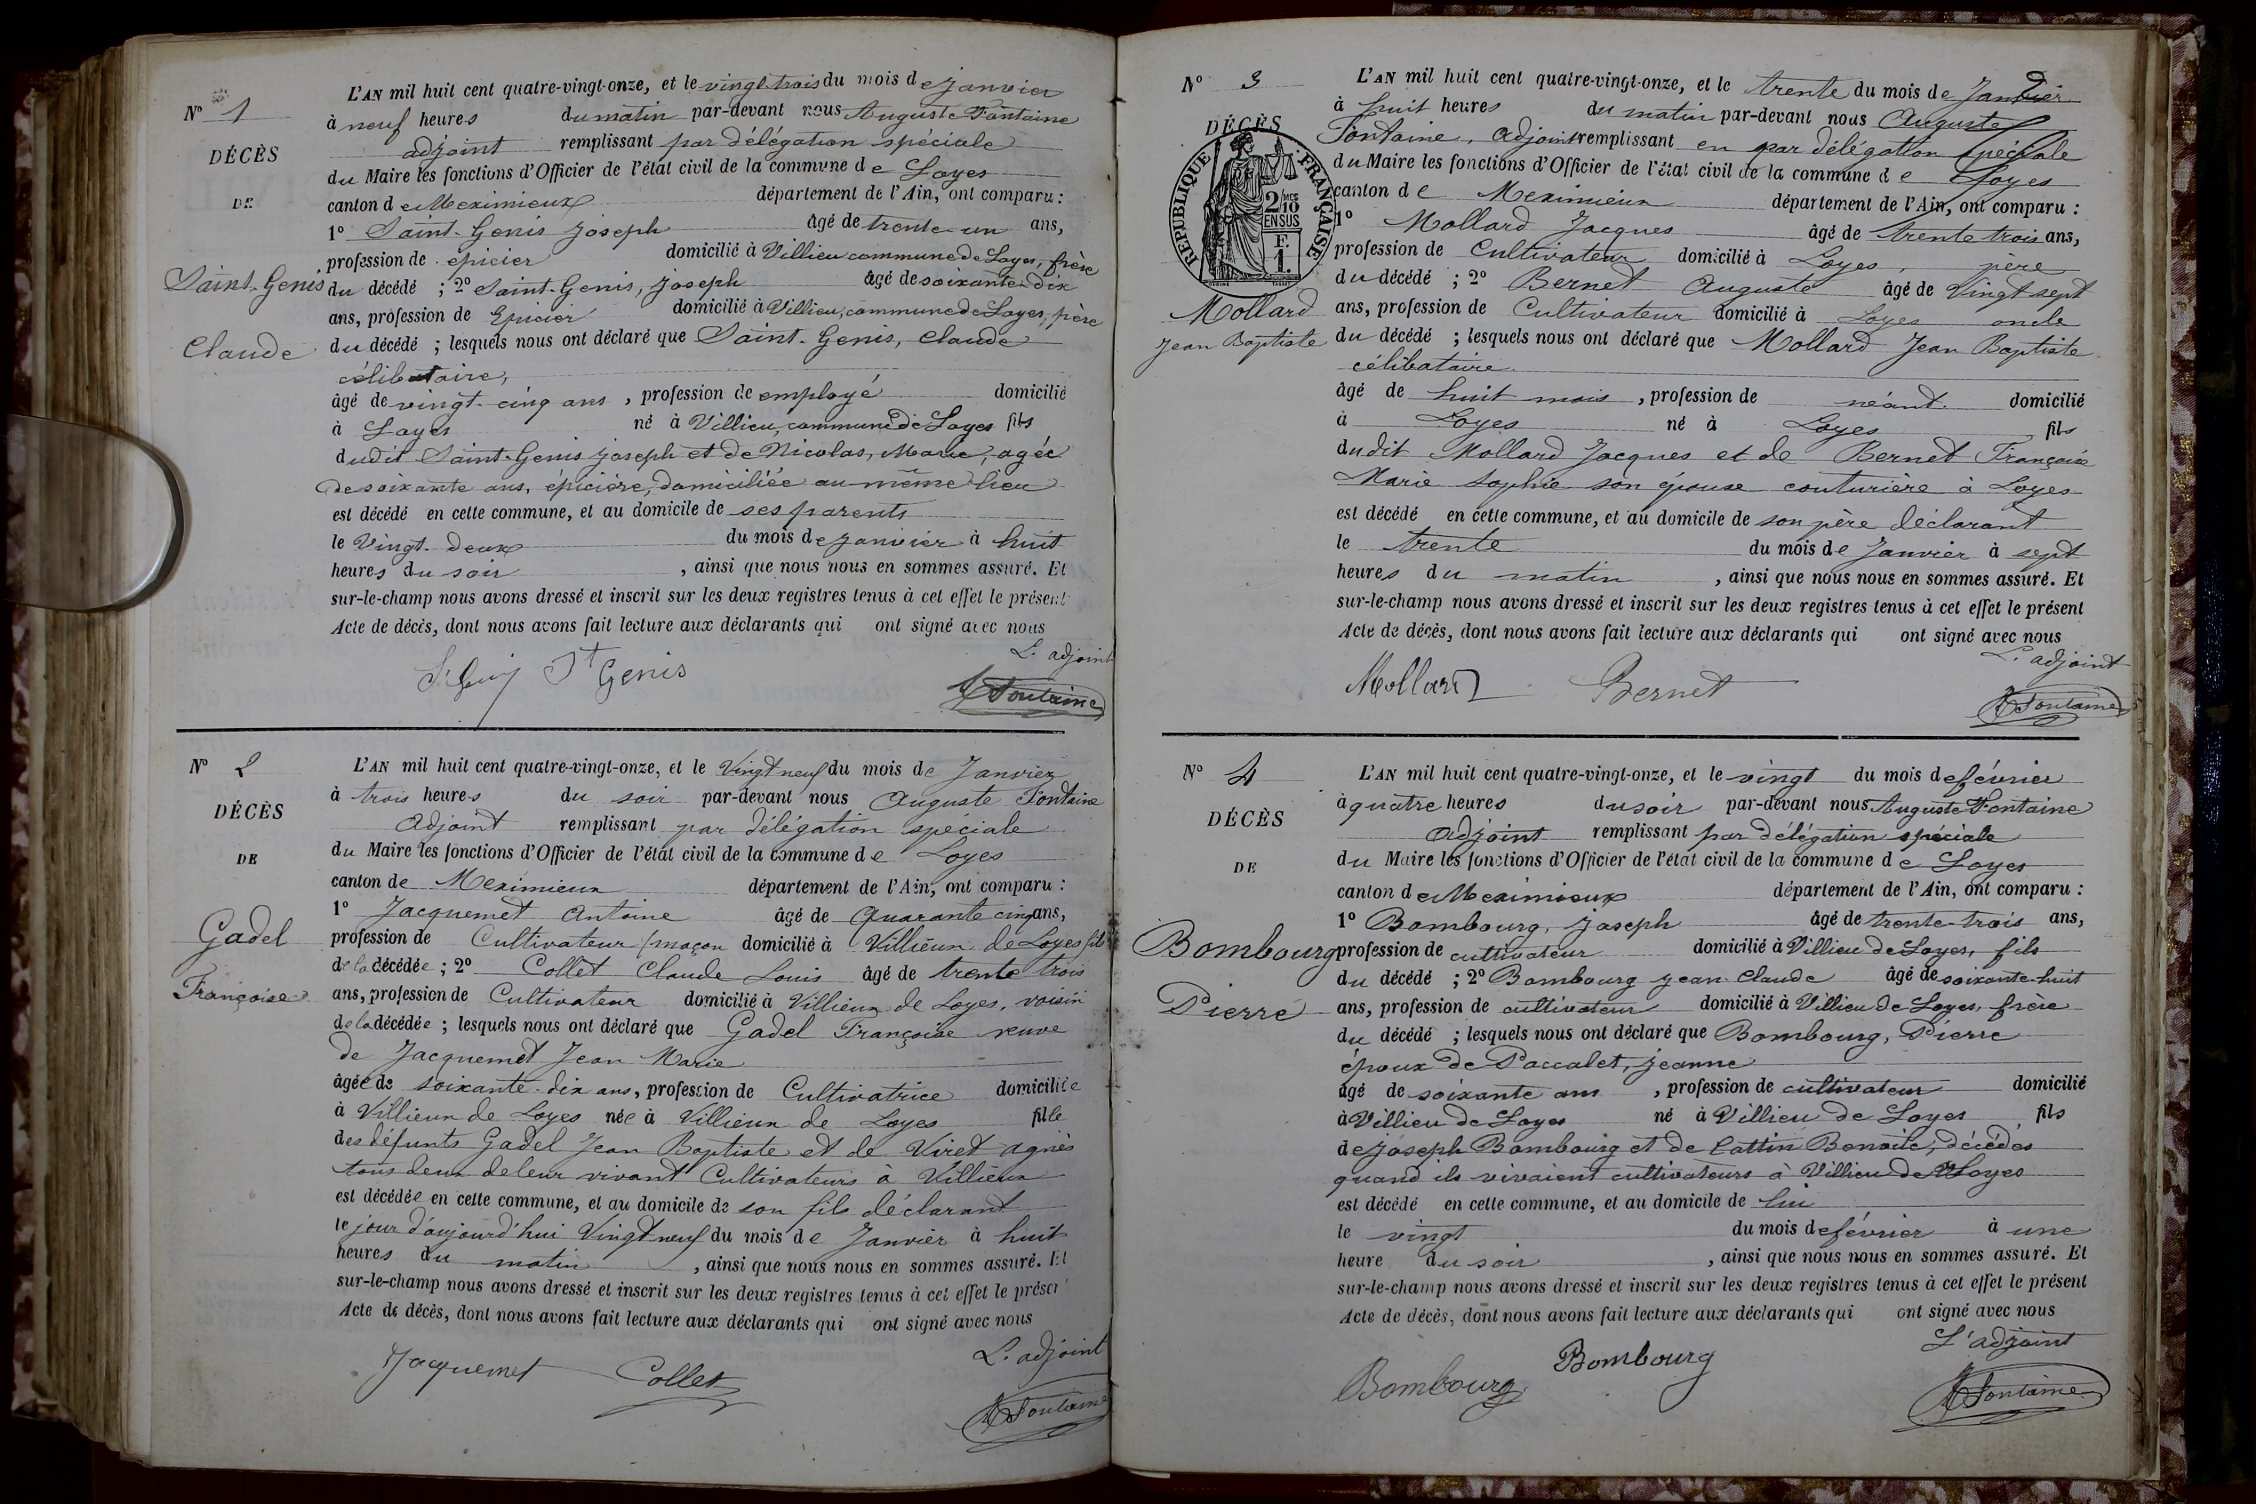 N° 1
DÉCÈS
DE
Saint-Genis
Claude
L'AN mil huit cent quatre-vingt-onze, et le vingt trois du mois de janvier
à neuf heures du matin par-devant nous Auguste Fontaine
adjoint remplissant par délégation spéciale
du Maire les fonctions d'Officier de l'état civil de la commune de Loyes
canton de Meximieux département de l'Ain, ont comparu :
1° Saint-Genis Joseph âgé de trente-un ans,
profession de épicier domicilié à Villieu commune de Loyes, frère
du décédé ; 2° Saint-Genis, Joseph âgé de soixante-dix
ans, profession de Epicier domicilié à Villieu, commune de Loyes, père
du décédé ; lesquels nous ont déclaré que Saint-Genis, Claude
célibataire,
âgé de vingt-cinq ans , profession de employé domicilié
à Loyes né à Villieu, commune de Loyes fils
dudit Saint-Genis Joseph et de Nicolas, Marie, agée
de soixante ans, épicière, domiciliée au même lieu
est décédé en cette commune, et au domicile de ses parents
le Vingt-deux du mois de janvier à huit
heures du soir , ainsi que nous nous en sommes assuré. Et
sur-le-champ nous avons dressé et inscrit sur les deux registres tenus à cet effet le présent
Acte de décès, dont nous avons fait lecture aux déclarants qui ont signé avec nous
L. adjoint
St Genis
A Fontaine
N° 2
DÉCÈS
DE
Gadel
Françoise
L'AN mil huit cent quatre-vingt-onze, et le Vingt neuf du mois de Janvier
à trois heures du soir par-devant nous Auguste Fontaine
Adjoint remplissant par délégation spéciale
du Maire les fonctions d'Officier de l'état civil de la commune de Loyes
canton de Meximieux département de l'Ain, ont comparu :
1° Jacquemet Antoine âgé de Quarante cinq ans,
profession de Cultivateur maçon domicilié à Villieux de Loyes fils
de la décédée ; 2° Collet Claude Louis âgé de trente trois
ans, profession de Cultivateur domicilié à Villieux de Loyes, voisin
de la décédée ; lesquels nous ont déclaré que Gadel Françoise veuve
de Jacquemet Jean Marie
âgée de soixante-dix ans, profession de Cultivatrice domiciliée
à Villieux de Loyes née à Villieux de Loyes fille
des défunts Gadel Jean Baptiste et de Viret Agnès
tous deux de leur vivant Cultivateurs à Villieux
est décédée en cette commune, et au domicile de son fils déclarant
le jour d'aujourd'hui Vingt neuf du mois de Janvier à huit
heures du matin , ainsi que nous nous en sommes assuré. Et
sur-le-champ nous avons dressé et inscrit sur les deux registres tenus à cet effet le présent
Acte de décès, dont nous avons fait lecture aux déclarants qui ont signé avec nous
L. adjoint
Jacquemet Collet
A Fontaine
N° 3
DÉCÈS
RÉPUBLIQUE FRANÇAISE
2/10 MES
EN SUS
F.
1.
Mollard
Jean Baptiste
L'AN mil huit cent quatre-vingt-onze, et le trente du mois de Janvier
à huit heures du matin par-devant nous Auguste
Fontaine, Adjoint remplissant en par délégation spéciale
du Maire les fonctions d'Officier de l'état civil de la commune de Loyes
canton de Meximieux département de l'Ain, ont comparu :
1° Mollard Jacques âgé de trente trois ans,
profession de Cultivateur domicilié à Loyes, père
du décédé ; 2° Bernet Auguste âgé de Vingt sept
ans, profession de Cultivateur domicilié à Loyes oncle
du décédé ; lesquels nous ont déclaré que Mollard Jean Baptiste
célibataire
âgé de huit mois , profession de néant. domicilié
à Loyes né à Loyes fils
dudit Mollard Jacques et de Bernet Françoise
Marie Sophie son épouse couturière à Loyes
est décédé en cette commune, et au domicile de son père déclarant
le trente du mois de Janvier à sept
heures du matin , ainsi que nous nous en sommes assuré. Et
sur-le-champ nous avons dressé et inscrit sur les deux registres tenus à cet effet le présent
Acte de décès, dont nous avons fait lecture aux déclarants qui ont signé avec nous
L. adjoint
Mollard Bernet
A Fontaine
N° 4
DÉCÈS
DE
Bombourg
Pierre
L'AN mil huit cent quatre-vingt-onze, et le vingt du mois de février
à quatre heures du soir par-devant nous Auguste Fontaine
adjoint remplissant par délégation spéciale
du Maire les fonctions d'Officier de l'état civil de la commune de Loyes
canton de Meximieux département de l'Ain, ont comparu :
1° Bombourg, Joseph âgé de trente-trois ans,
profession de cultivateur domicilié à Villieu de Loyes, fils
du décédé ; 2° Bombourg Jean-Claude âgé de soixante-huit
ans, profession de cultivateur domicilié à Villieu de Loyes, frère
du décédé ; lesquels nous ont déclaré que Bombourg, Pierre
époux de Paccalet, Jeanne
âgé de soixante ans , profession de cultivateur domicilié
à Villieu de Loyes né à Villieu de Loyes fils
de Joseph Bombourg et de Cattin Benoite, décédés
quand ils vivaient cultivateurs à Villieu de Loyes
est décédé en cette commune, et au domicile de lui
le vingt du mois de février à une
heure du soir , ainsi que nous nous en sommes assuré. Et
sur-le-champ nous avons dressé et inscrit sur les deux registres tenus à cet effet le présent
Acte de décès, dont nous avons fait lecture aux déclarants qui ont signé avec nous
L'adjoint
Bombourg Bombourg
A Fontaine